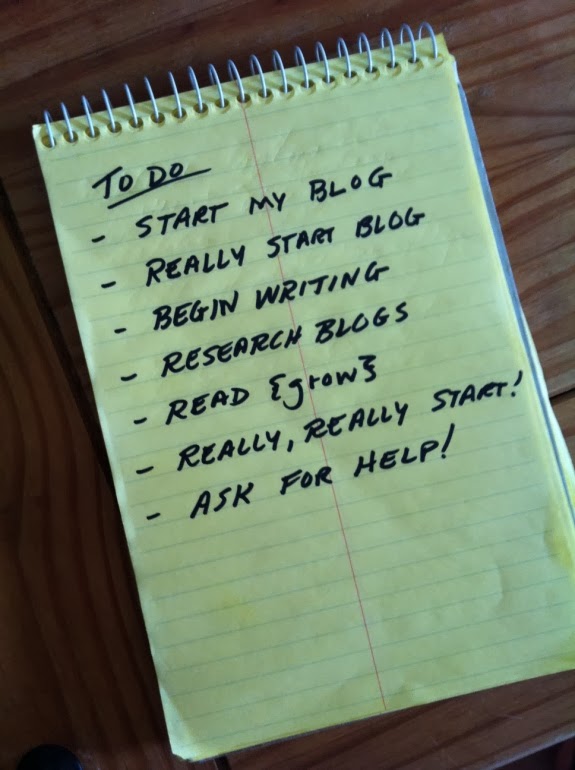 TO DO
- START MY BLOG
- REALLY START BLOG
- BEGIN WRITING
- RESEARCH BLOGS
- READ {grow}
- REALLY, REALLY START!
- ASK FOR HELP!